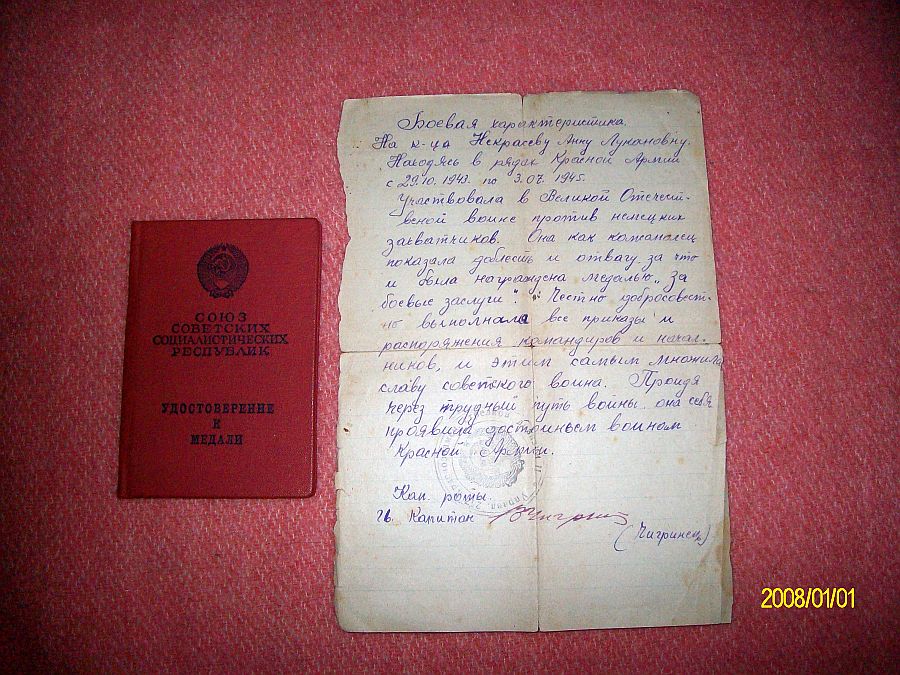 СОЮЗ
СОВЕТСКИХ
СОЦИАЛИСТИЧЕСКИХ
РЕСПУБЛИК
УДОСТОВЕРЕНИЕ
К
МЕДАЛИ
Боевая характеристика.
На к-ца Некрасеву Анну Лукановну.
Находясь в рядах Красной Армии
с 29.10.1943 по 3.07.1945.
Участвовала в Великой Отечест-
венной войне против немецких
захватчиков. Она как комсомолец
показала доблесть и отвагу за что
и была награждена медалью „За
боевые заслуги". Честно добросовест-
но выполняла все приказы и
распоряжения командиров и начал-
ников, и этим самым множила
славу советского воина. Пройдя
через трудный путь войны она себя
проявила достойным воином
Красной Армии.
Ком. роты.
Гв. Капитан
(Чигринец)
2008/01/01